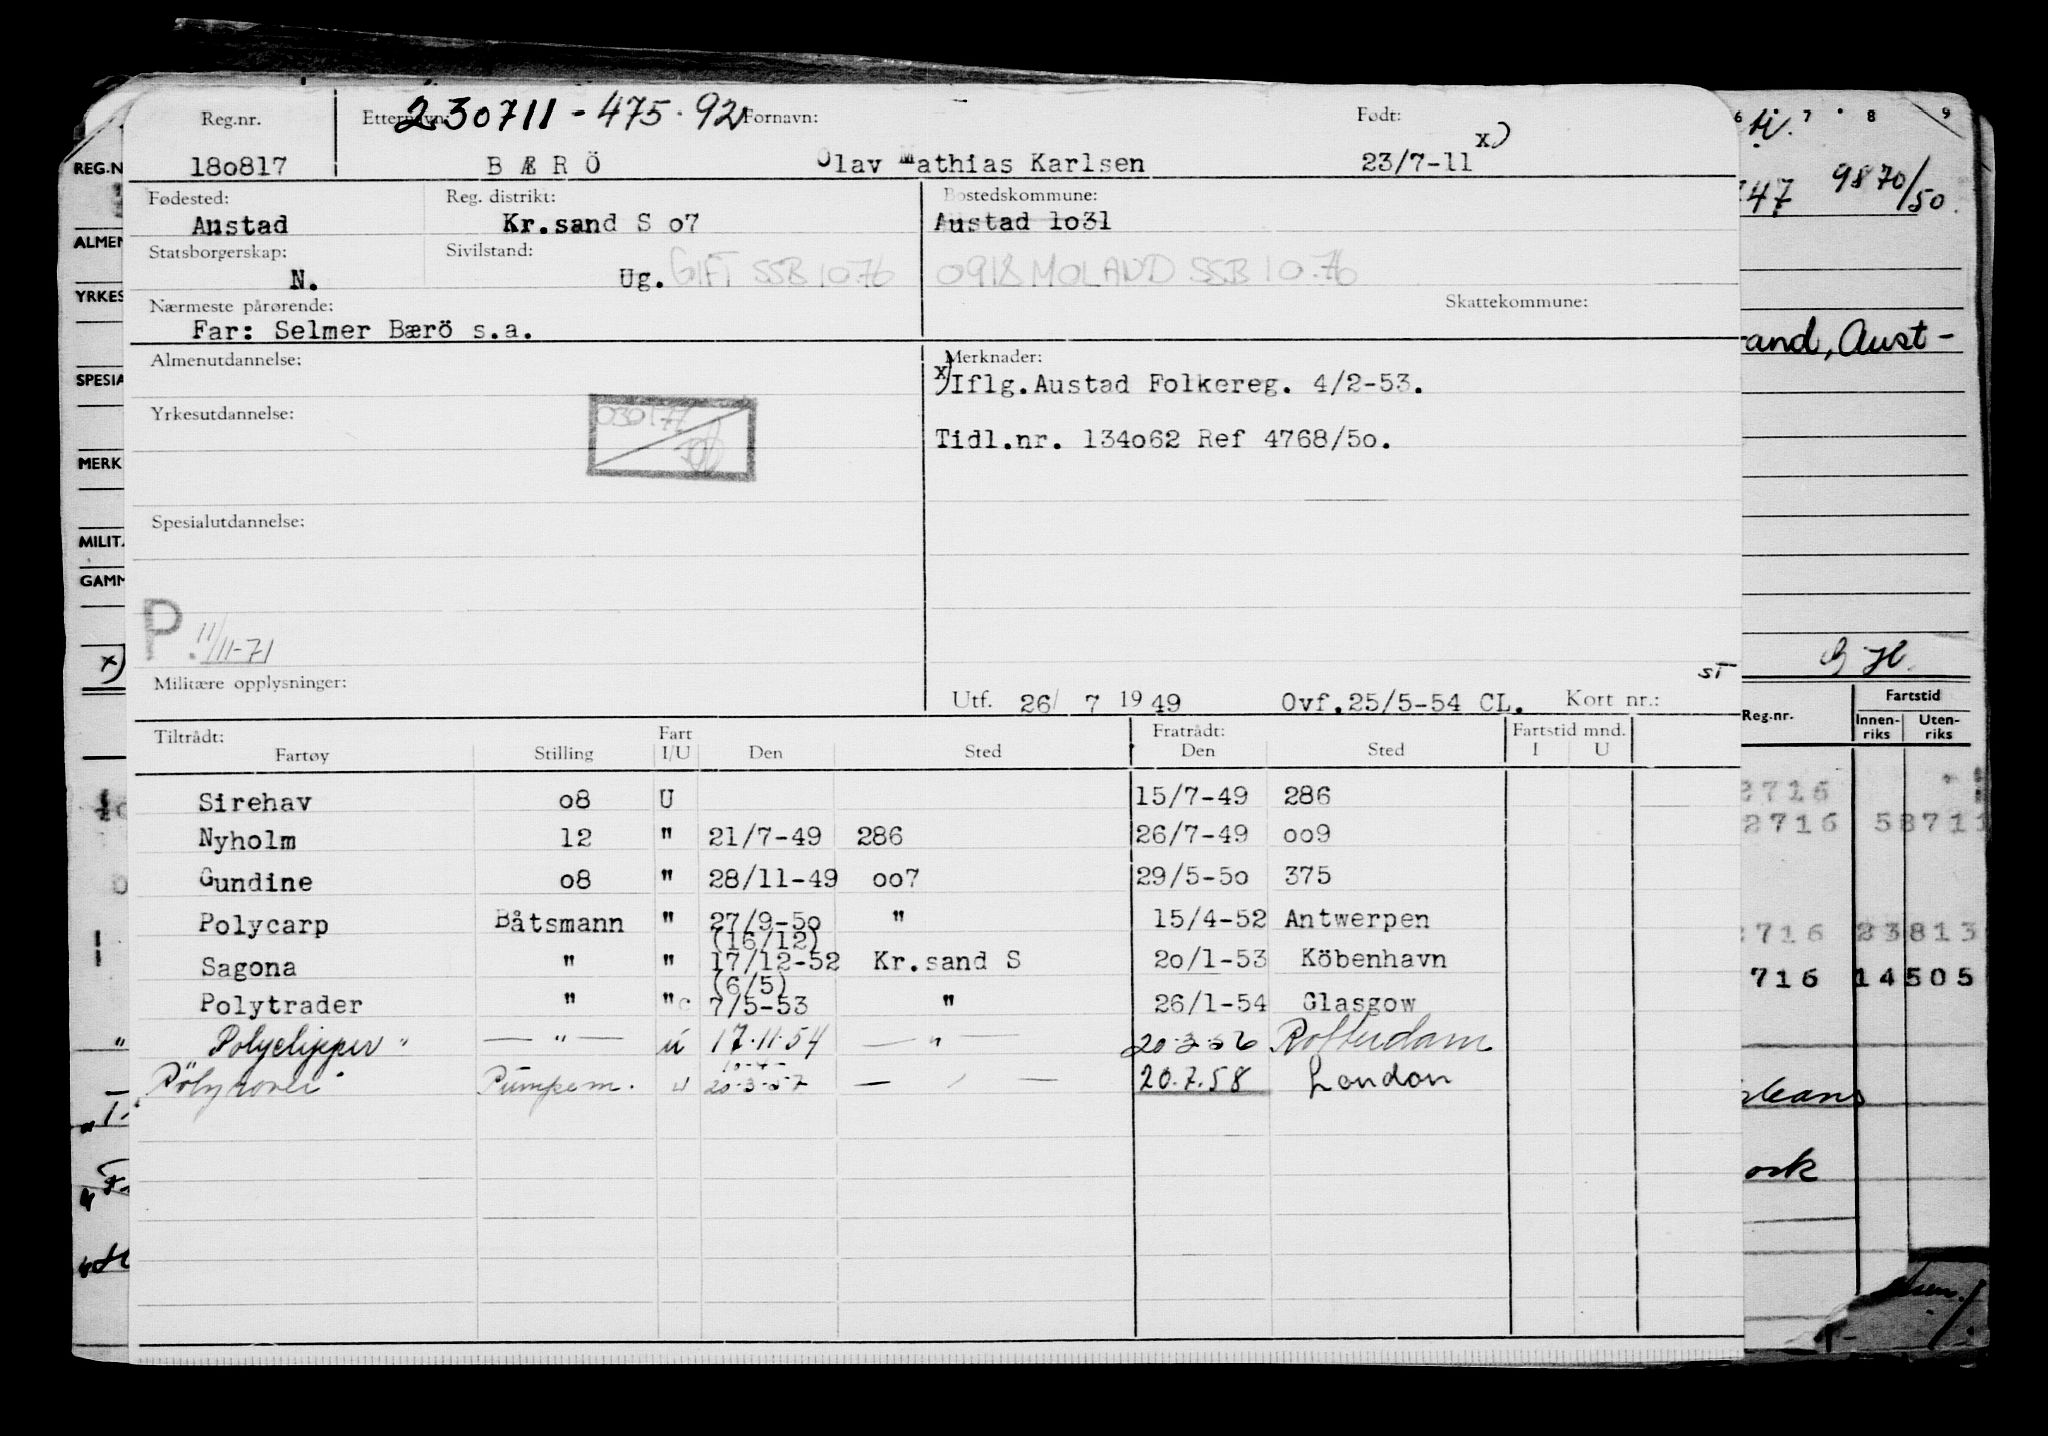 Reg.nr. Etternavn: 230711-475.92 Fornavn: Født:
180817 B Æ R Ö Olav Mathias Karlsen 23/7-11 x)
Fødested: Reg. distrikt: Bostedskommune:
Austad Kr.sand S o7 Austad 1o31
Statsborgerskap: Sivilstand:
N. Ug. GIFT SSB 10.76 0918 MOLAND SSB 10.76
Nærmeste pårørende: Skattekommune:
Far: Selmer Bærö s.a.
Almenutdannelse: Merknader:
x)Iflg.Austad Folkereg. 4/2-53.
Yrkesutdannelse: 030177
Tidl.nr. 134o62 Ref 4768/5o.
Spesialutdannelse:
P. 11/11-71
Militære opplysninger: ST
Utf. 26/ 7 1949 Ovf.25/5-54 CL. Kort nr.:
Tiltrådt: Fart Fratrådt: Fartstid mnd.
Fartøy Stilling I/U Den Sted Den Sted I U
Sirehav o8 U 15/7-49 286
Nyholm 12 " 21/7-49 286 26/7-49 oo9
Gundine o8 " 28/11-49 oo7 29/5-5o 375
Polycarp Båtsmann " 27/9-5o " 15/4-52 Antwerpen
(16/12)
Sagona " " 17/12-52 Kr.sand S 2o/1-53 Köbenhavn
(6/5)
Polytrader " " c 7/5-53 " 26/1-54 Glasgow
Polyclipper " — " — u 17.11.54 — " — 20-3-56 Rotterdam
10-4-
Polyrover Pumpem. u 20-3-57 — " — 20.7.58 London
REG.N
ALMEN
YRKES
SPESIA
MERK
MILIT
GAMM
x)
6 7 8 9
147 9870/50.
rand, Aust-
Reg.nr. Fartstid
Innenriks Utenriks
2716
2716 58711
716 23813
716 14505
leans
ork